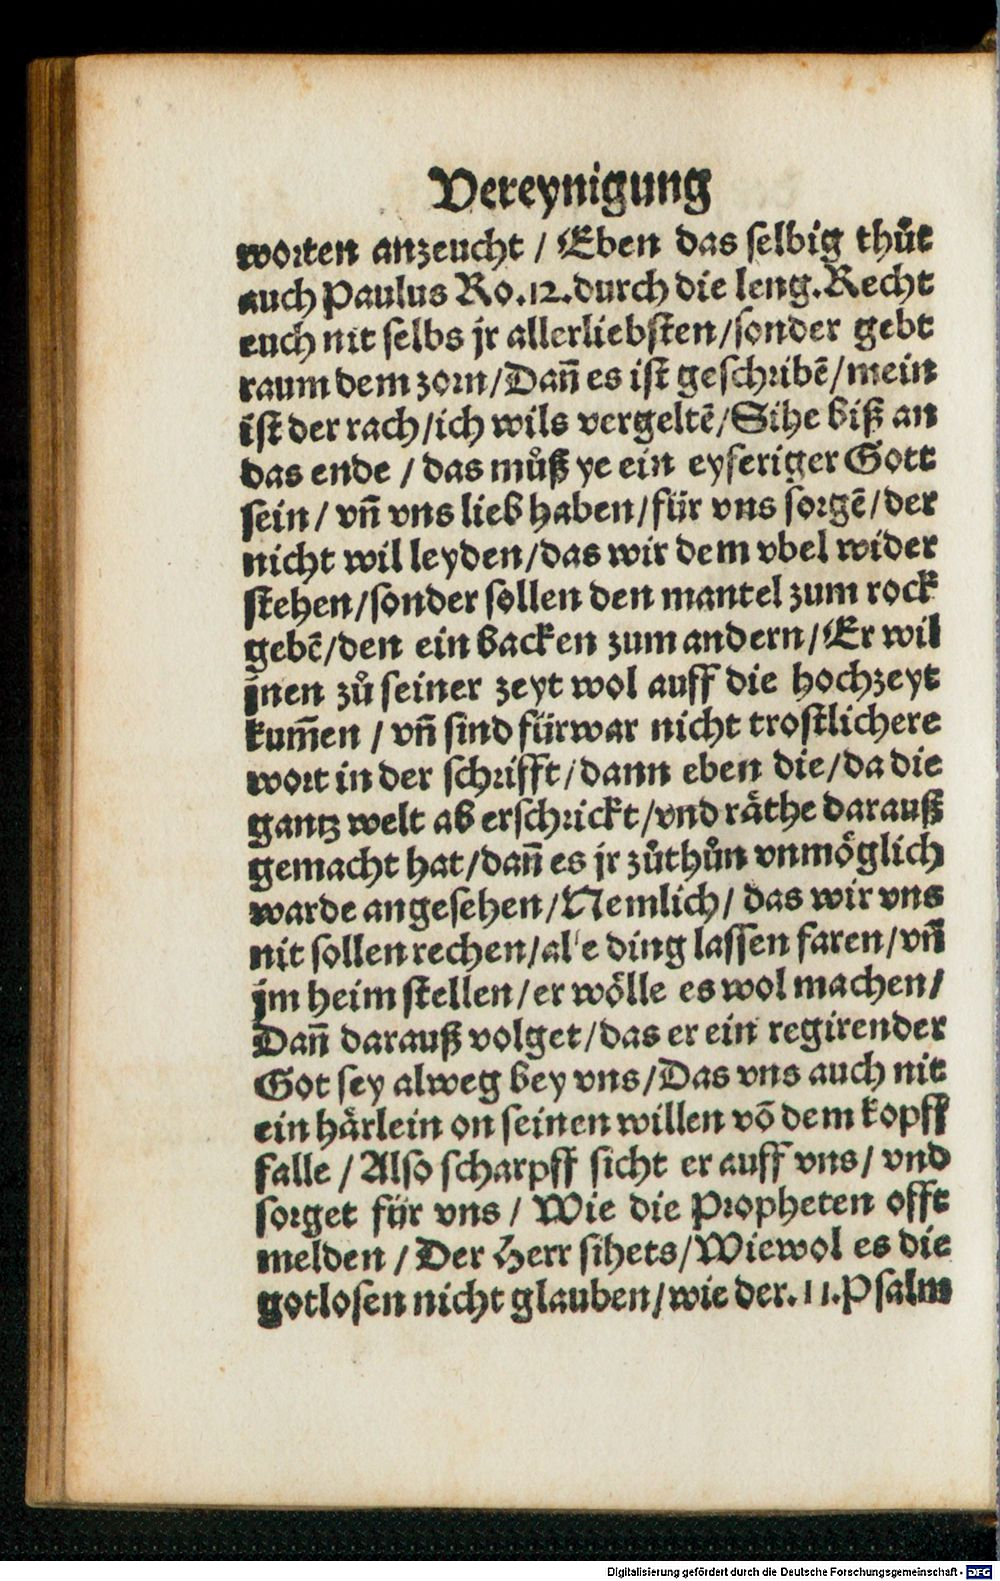 Vereynigung
worten anzeucht / Eben das selbig thůt
auch Paulus Ro.12.durch die leng.Recht
euch nit selbs jr allerliebsten/sonder gebt
raum dem zorn/Dañ es ist geschribẽ/mein
ist der rach/ich wils vergeltẽ/Sihe biß an
das ende / das můß ye ein eyferiger Gott
sein/ vñ vns lieb haben/für vns sorgẽ/der
nicht wil leyden/das wir dem vbel wider
stehen/sonder sollen den mantel zum rock
gebẽ/den ein backen zum andern/Er wil
jnen zů seiner zeyt wol auff die hochzeyt
kum̃en / vñ sind fürwar nicht trostlichere
wort in der schrifft/dann eben die/da die
gantz welt ab erschrickt/vnd räthe darauß
gemacht hat/dañ es jr zůthůn vnmöglich
warde angesehen/Nemlich/ das wir vns
nit sollen rechen/alle ding lassen faren/vñ
jm heim stellen/er wölle es wol machen/
Dañ darauß volget/das er ein regirender
Got sey alweg bey vns/Das vns auch nit
ein härlein on seinen willen võ dem kopff
falle / Also scharpff sicht er auff vns/ vnd
sorget für vns / Wie die Propheten offt
melden / Der Herr sihets/Wiewol es die
gotlosen nicht glauben/wie der.11.Psalm
Digitalisierung gefördert durch die Deutsche Forschungsgemeinschaft - DFG